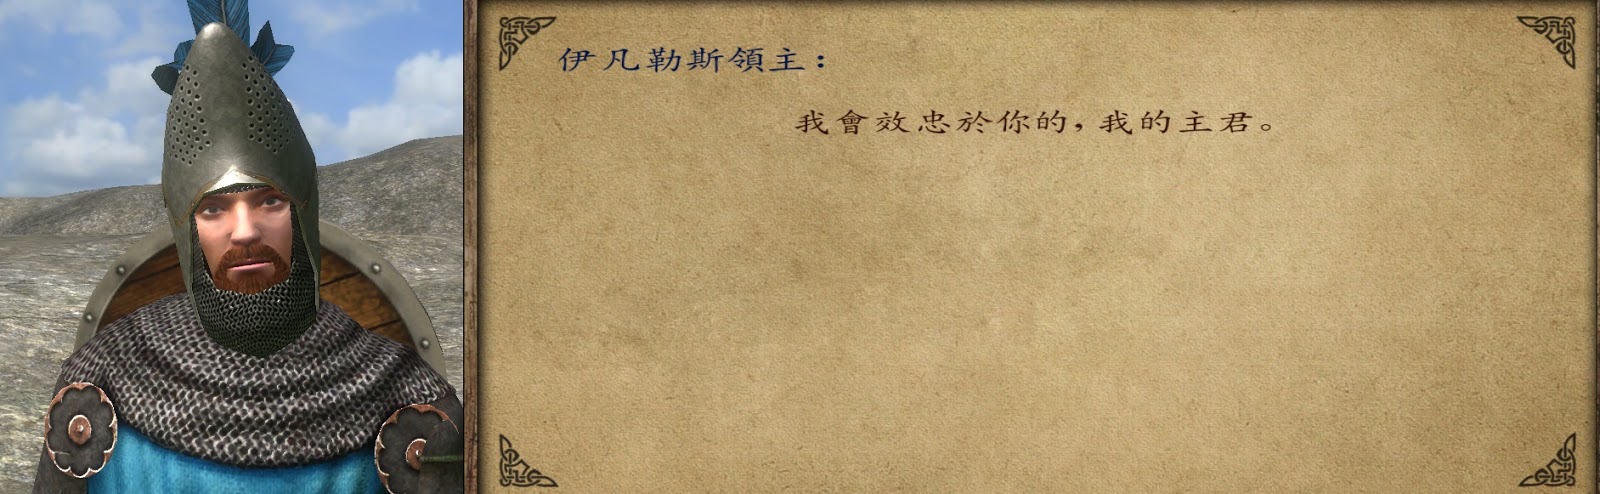 伊凡勒斯領主：
我會效忠於你的，我的主君。